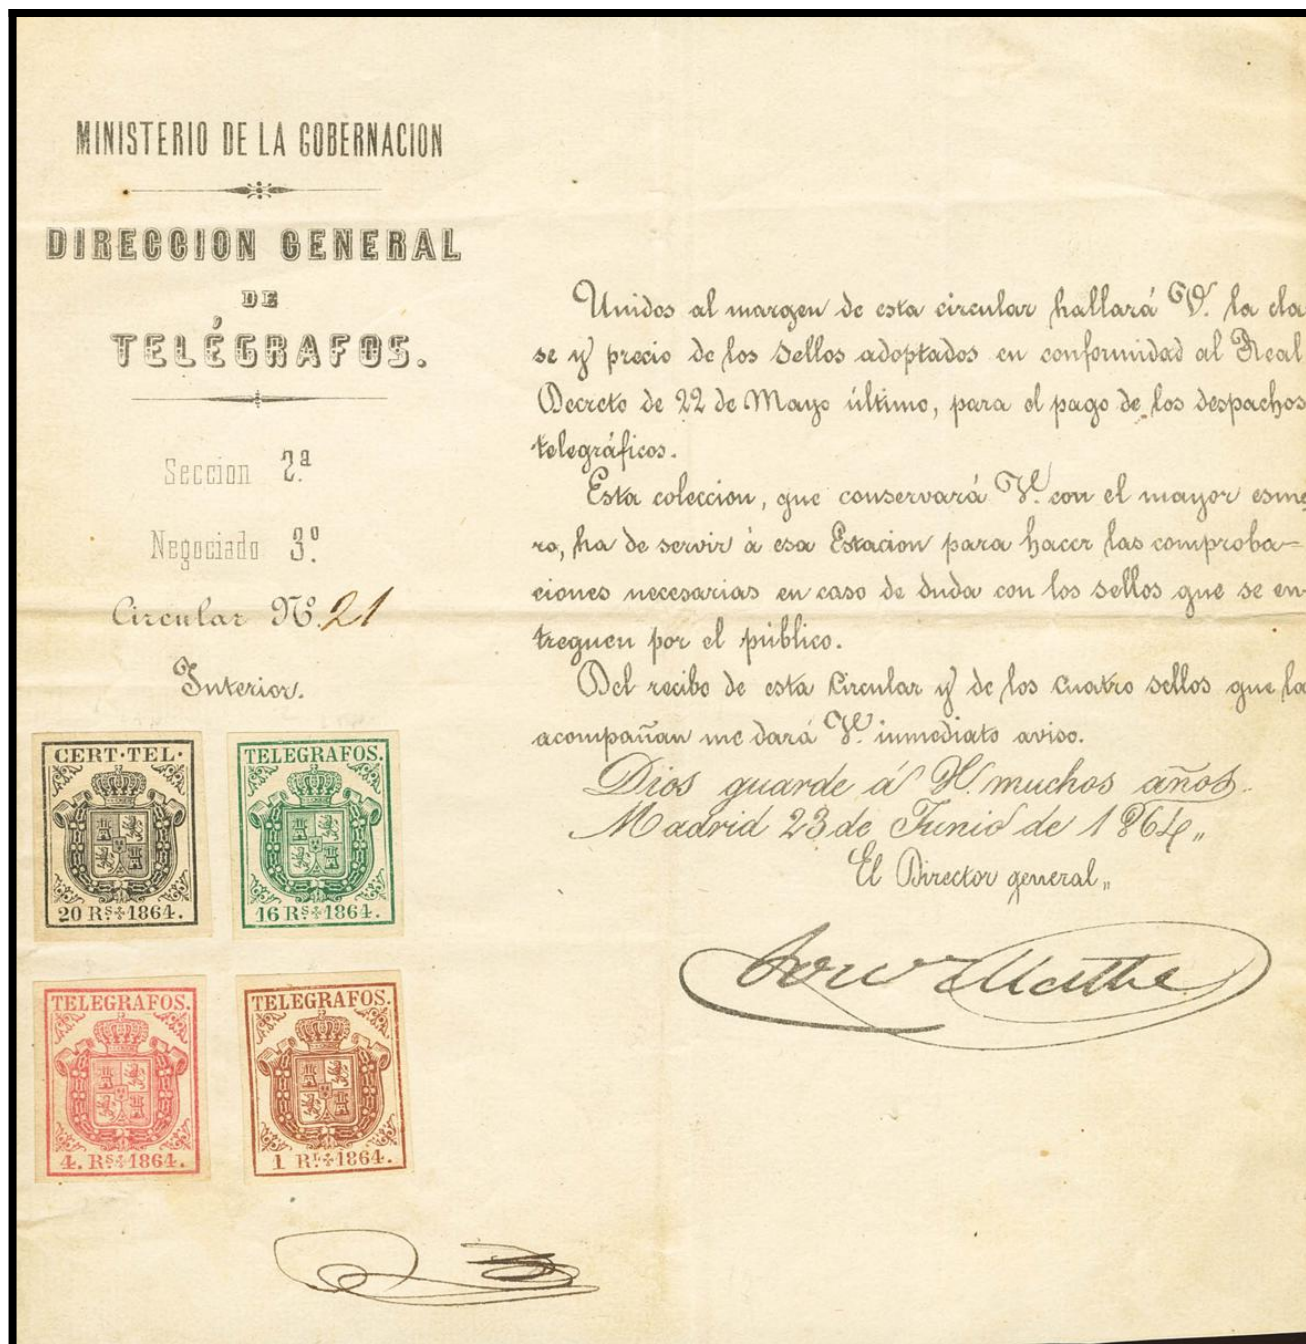 MINISTERIO DE LA GOBERNACION
DIRECCION GENERAL
DE
TELÉGRAFOS.
Seccion 2.ª
Negociado 3.º
Circular Nº. 21
Interior.
CERT·TEL·
20 Rs. 1864.
TELEGRAFOS.
16 Rs. 1864.
TELEGRAFOS.
4. Rs. 1864.
TELEGRAFOS.
1 Rl. 1864.
Unidos al margen de esta circular hallará V. la cla
se y precio de los sellos adoptados en conformidad al Real
Decreto de 22 de Mayo último, para el pago de los despachos
telegráficos.
Esta coleccion, que conservará V. con el mayor esme
ro, ha de servir á esa Estacion para hacer las comproba=
ciones necesarias en caso de duda con los sellos que se en-
treguen por el público.
Del recibo de esta Circular y de los cuatro sellos que la
acompañan me dará V. inmediato aviso.
Dios guarde á V. muchos años.
Madrid 23 de Junio de 1864„
El Director general„
Mathe